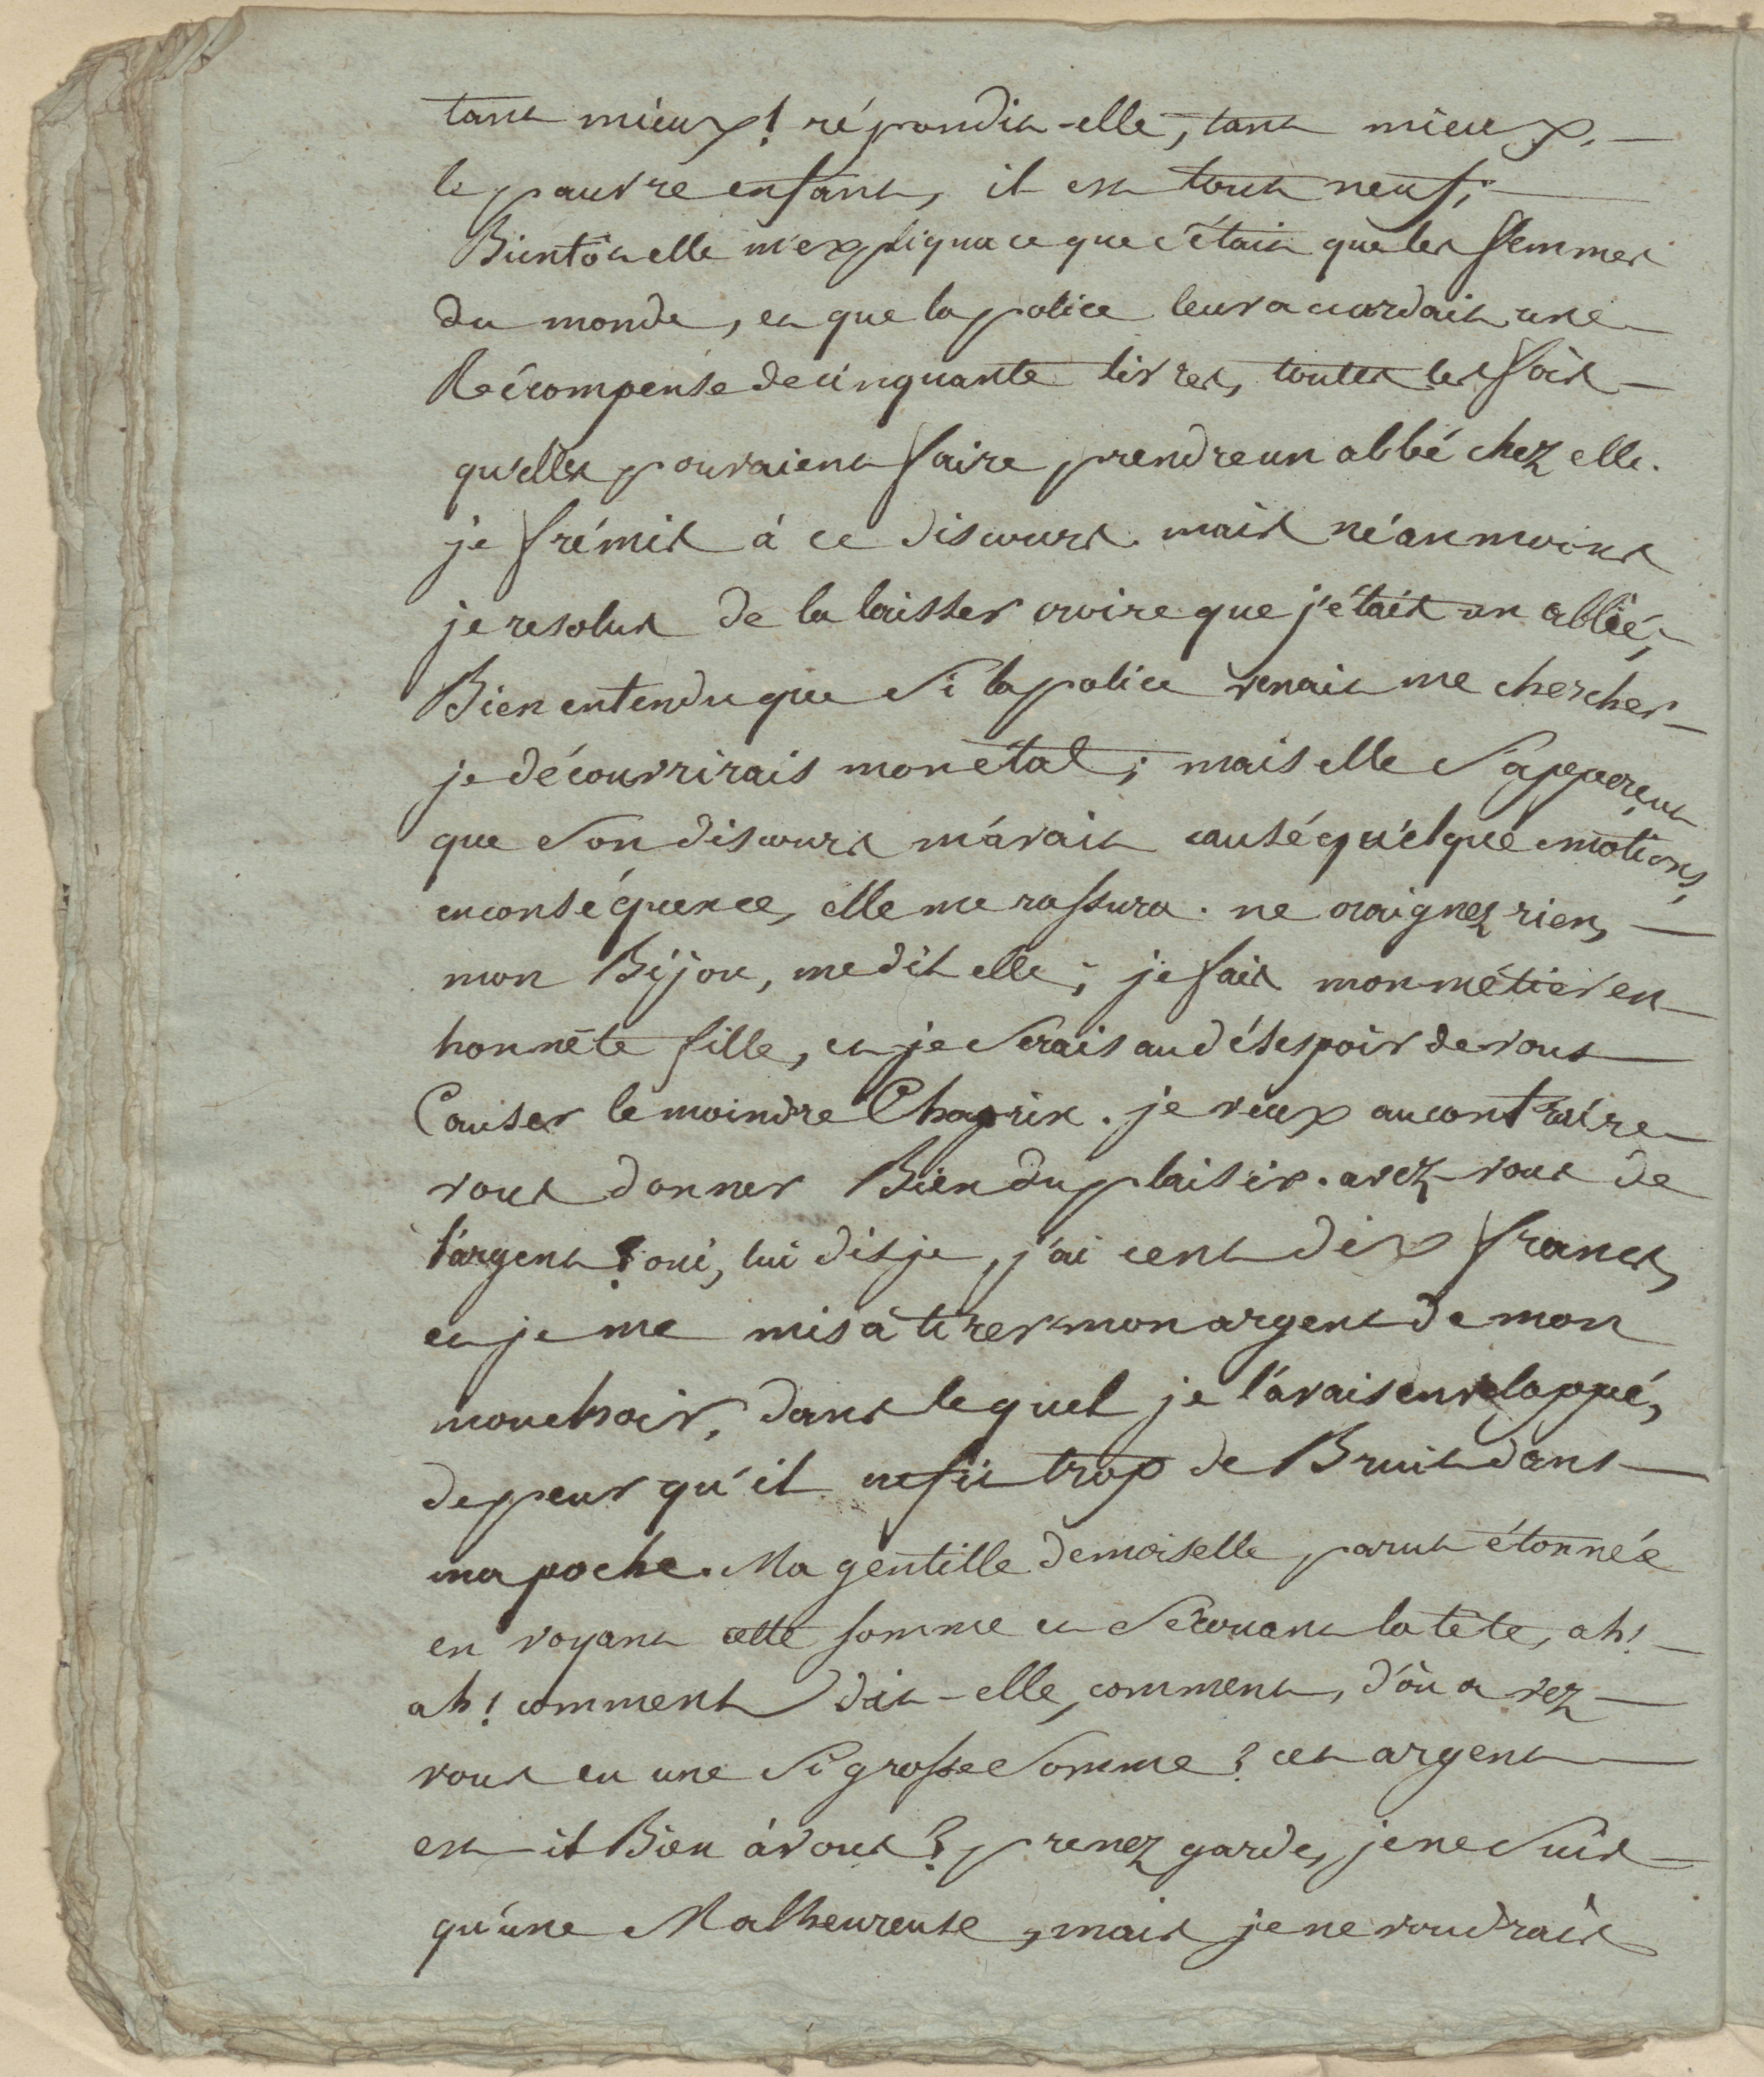 tant mieux! répondit-elle, tant mieux,
le pauvre enfant, il est tout neuf;
Bientôt elle m'expliqua ce que c'était que les femmes
du monde, et que la police leur accordait une
Récompense de cinquante livres, toutes les fois
qu'elles pouvaient faire prendre un abbé chez elle.
je frémis à ce discours. mais néanmoins
je resolus de la laisser croire que j'étais un abbé,
Bien entendu que si la police venait me chercher
je découvrirais mon état; mais elle s'apperçut
que son discours m'avait causé quelque émotions,
en conséquence, elle me rassura. ne craignez rien,
mon Bijou, me dit elle; je fais mon métier en
honnête fille, et je serais au désespoir de vous
Causer le moindre Chagrin. je veux au contraire
vous donner Bien du plaisir. avez-vous de
l'argent? oui, lui dis je, j'ai cent dix francs,
et je me mis à tirer mon argent de mon
mouchoir, dans lequel je l'avais enveloppé,
de peur qu'il ne fit trop de Bruit dans
ma poche. Ma gentille demoiselle parut étonnée
en voyant cette somme et secouant la tête, ah!
ah! comment dit-elle, comment, d'où avez-
vous eu une si grosse somme? cet argent
est-il Bien à vous? prenez garde, je ne suis
qu'une Malheureuse, mais je ne voudrais